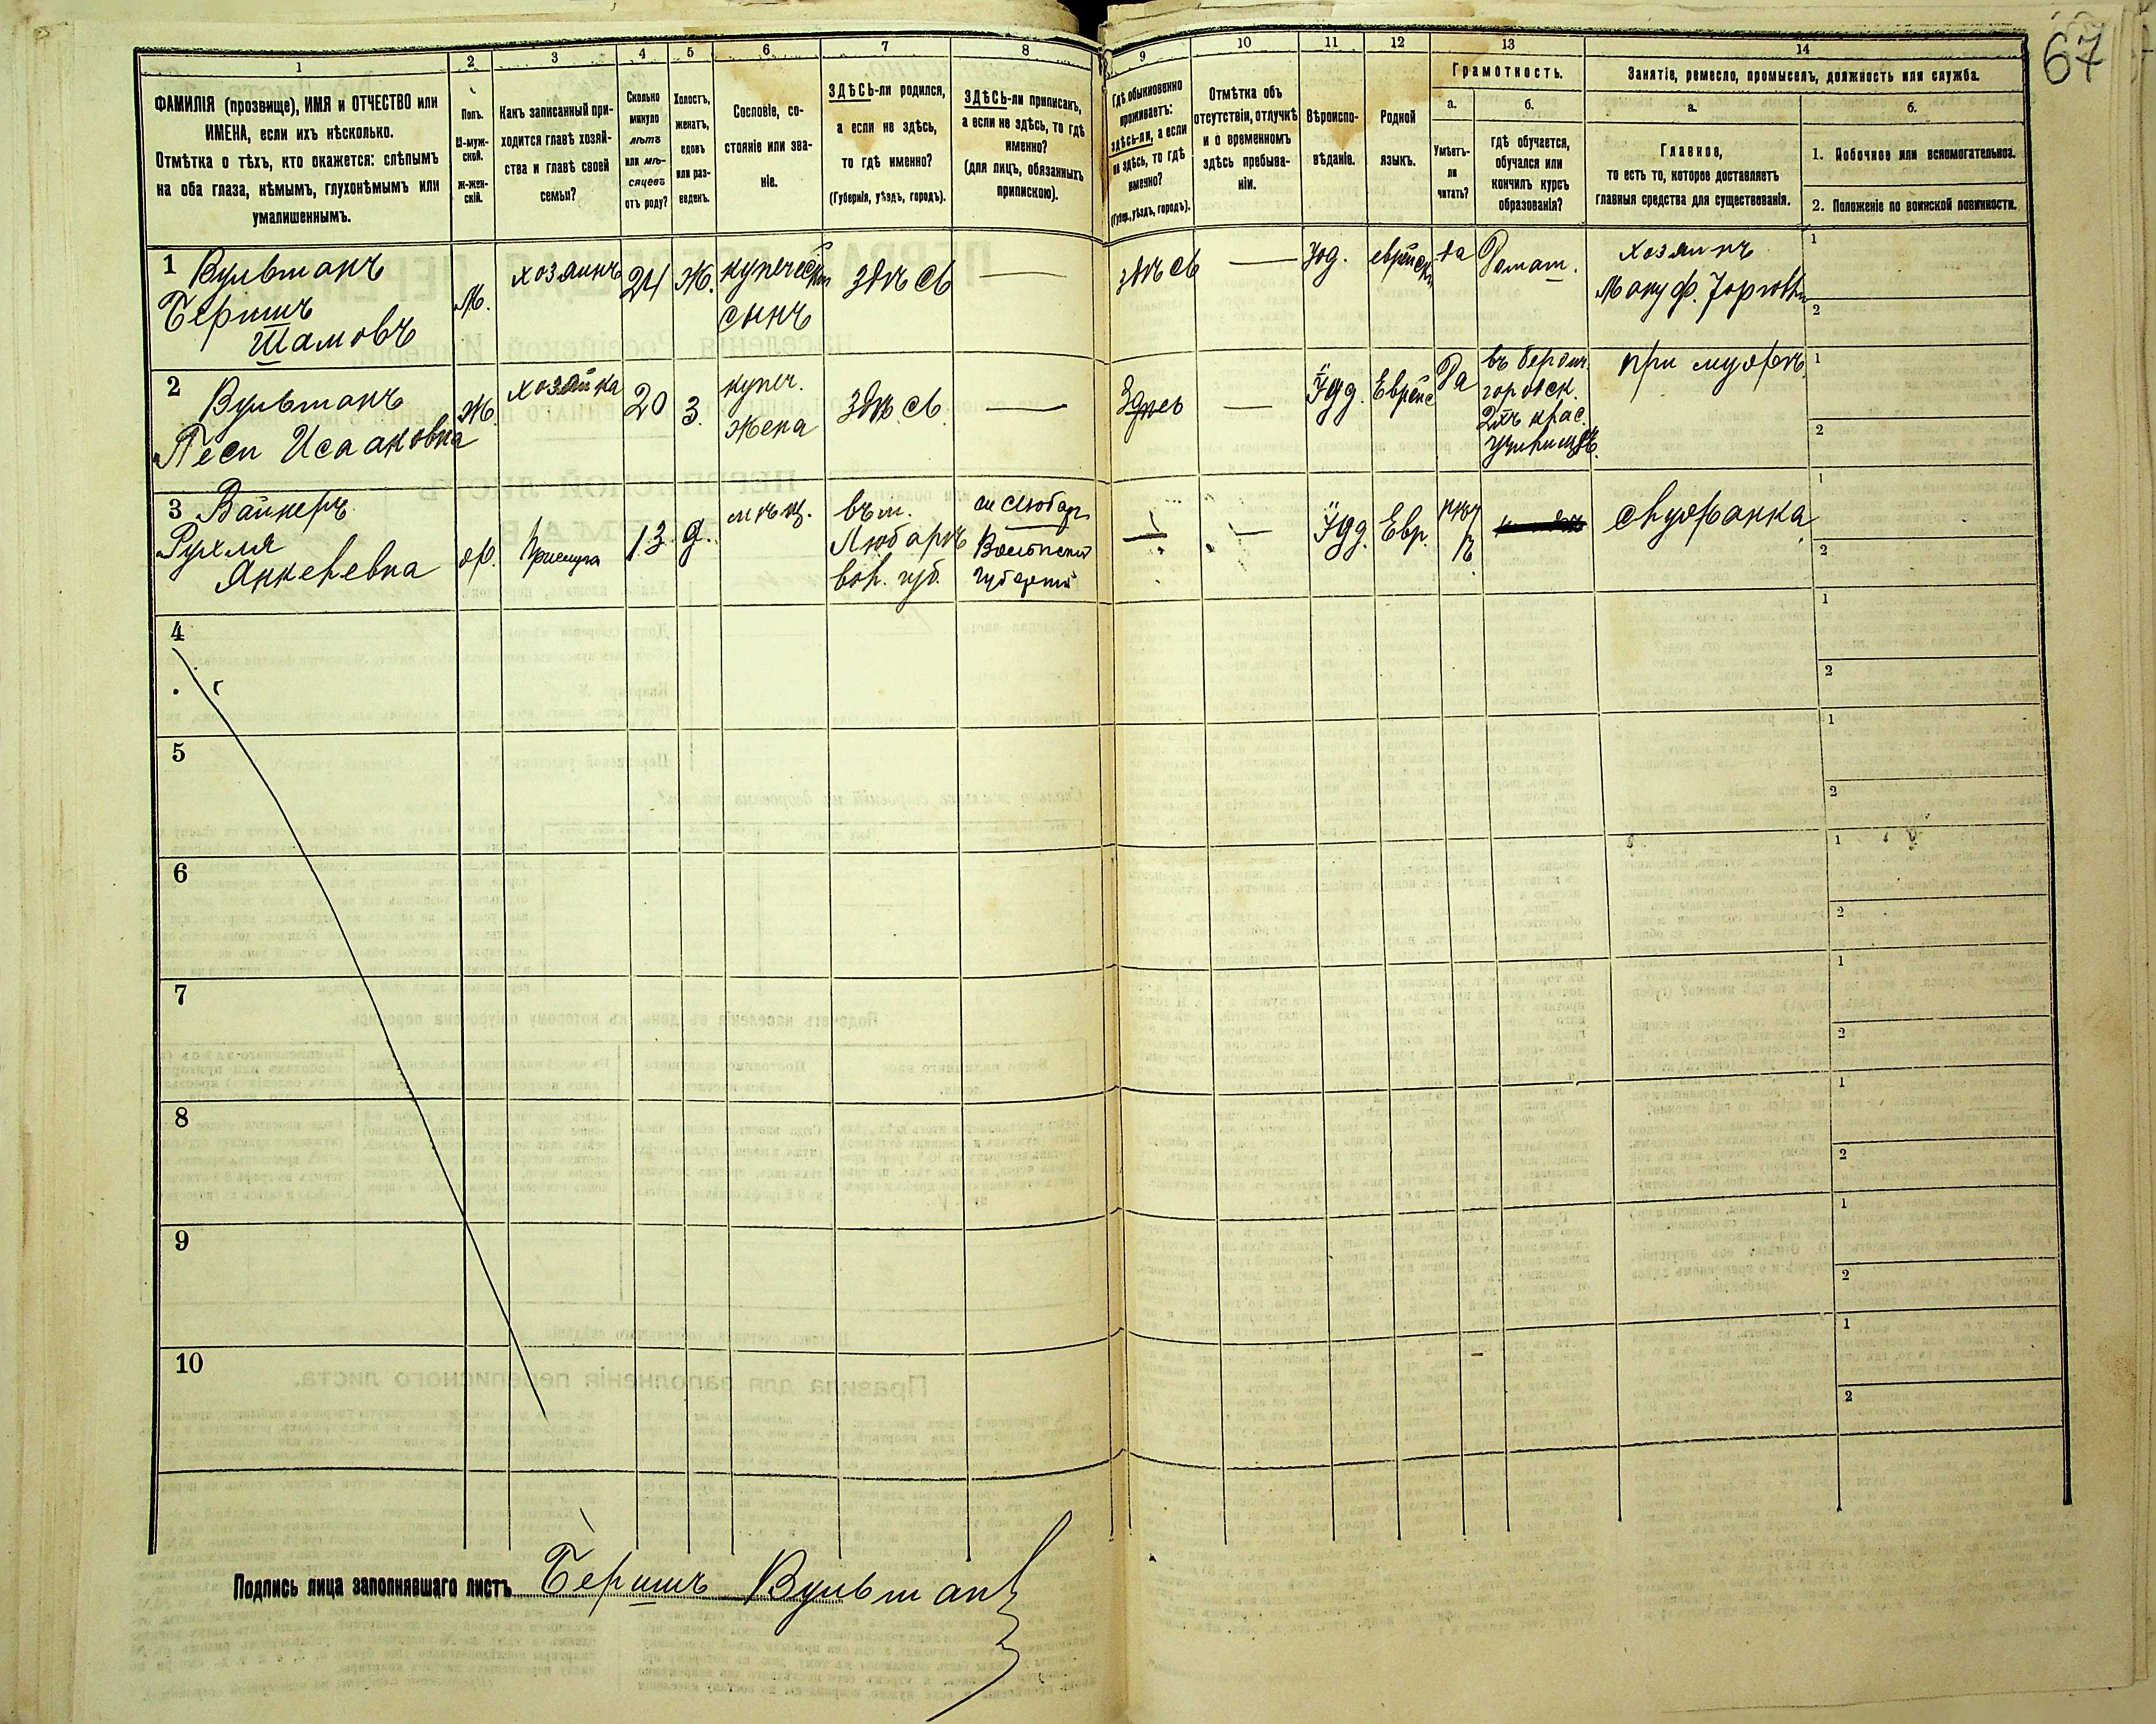 67
1
ФАМИЛІЯ (прозвище), ИМЯ и ОТЧЕСТВО или
ИМЕНА, если ихъ нѣсколько.
Отмѣтка о тѣхъ, кто окажется: слѣпымъ
на оба глаза, нѣмымъ, глухонѣмымъ или
умалишеннымъ.
2
Полъ.
М-муж-
ской.
Ж-жен-
скій.
3
Какъ записанный при-
ходится главѣ хозяй-
ства и главѣ своей
семьи?
4
Сколько
минуло
лѣтъ
или мѣ-
сяцевъ
отъ роду?
5
Холостъ,
женатъ,
вдовъ
или раз-
веденъ.
6
Сословіе, со-
стояніе или зва-
ніе.
7
ЗДѢСЬ-ли родился,
а если не здѣсь,
то гдѣ именно?
(Губернія, уѣздъ, городъ).
8
ЗДѢСЬ-ли приписанъ,
а если не здѣсь, то гдѣ
именно?
(для лицъ, обязанныхъ
припискою).
9
Гдѣ обыкновенно
проживаетъ:
здѣсь-ли, а если
не здѣсь, то гдѣ
именно?
(Губер., уѣздъ, городъ).
10
Отмѣтка объ
отсутствіи, отлучкѣ
и о временномъ
здѣсь пребыва-
ніи.
11
Вѣроиспо-
вѣданіе.
12
Родной
языкъ.
13
Грамотность.
а.
Умѣетъ-
ли
читать?
б.
гдѣ обучается,
обучался или
кончилъ курсъ
образованія?
14
Занятіе, ремесло, промыселъ, должность или служба.
а.
Главное,
то есть то, которое доставляетъ
главныя средства для существованія.
б.
1. Побочное или вспомогательное.
2. Положеніе по воинской повинности.
1 Вульманъ
Бершъ
Шамовъ
М.
хозяинъ
24
Ж.
купеческій
сынъ
здѣсь
—
здѣсь
—
Іуд.
еврейскій
да
Домаш.
хозяинъ
Мануф. Торговли
1
2
2 Вульманъ
Песи Исааковна
Ж.
хозяйка
20
З.
купеч.
жена
здѣсь
—
Здѣсь
—
Іуд.
Еврейс
Да
въ бердич.
городск.
2хъ клас.
училищѣ.
при мужѣ.
1
2
3 Вайнеръ
Рухля
Янкелевна
ж.
Прислуга
13
д.
мѣщ.
въ м.
Любарѣ
вол. губ.
м Любаръ
Волынской
губерніи
—
—
Іуд.
Евр.
нѣт
служанка
1
2
4
1
2
5
1
2
6
1
2
7
1
2
8
1
2
9
1
2
10
1
2
Подпись лица заполнявшаго листъ Бершъ Вульманъ